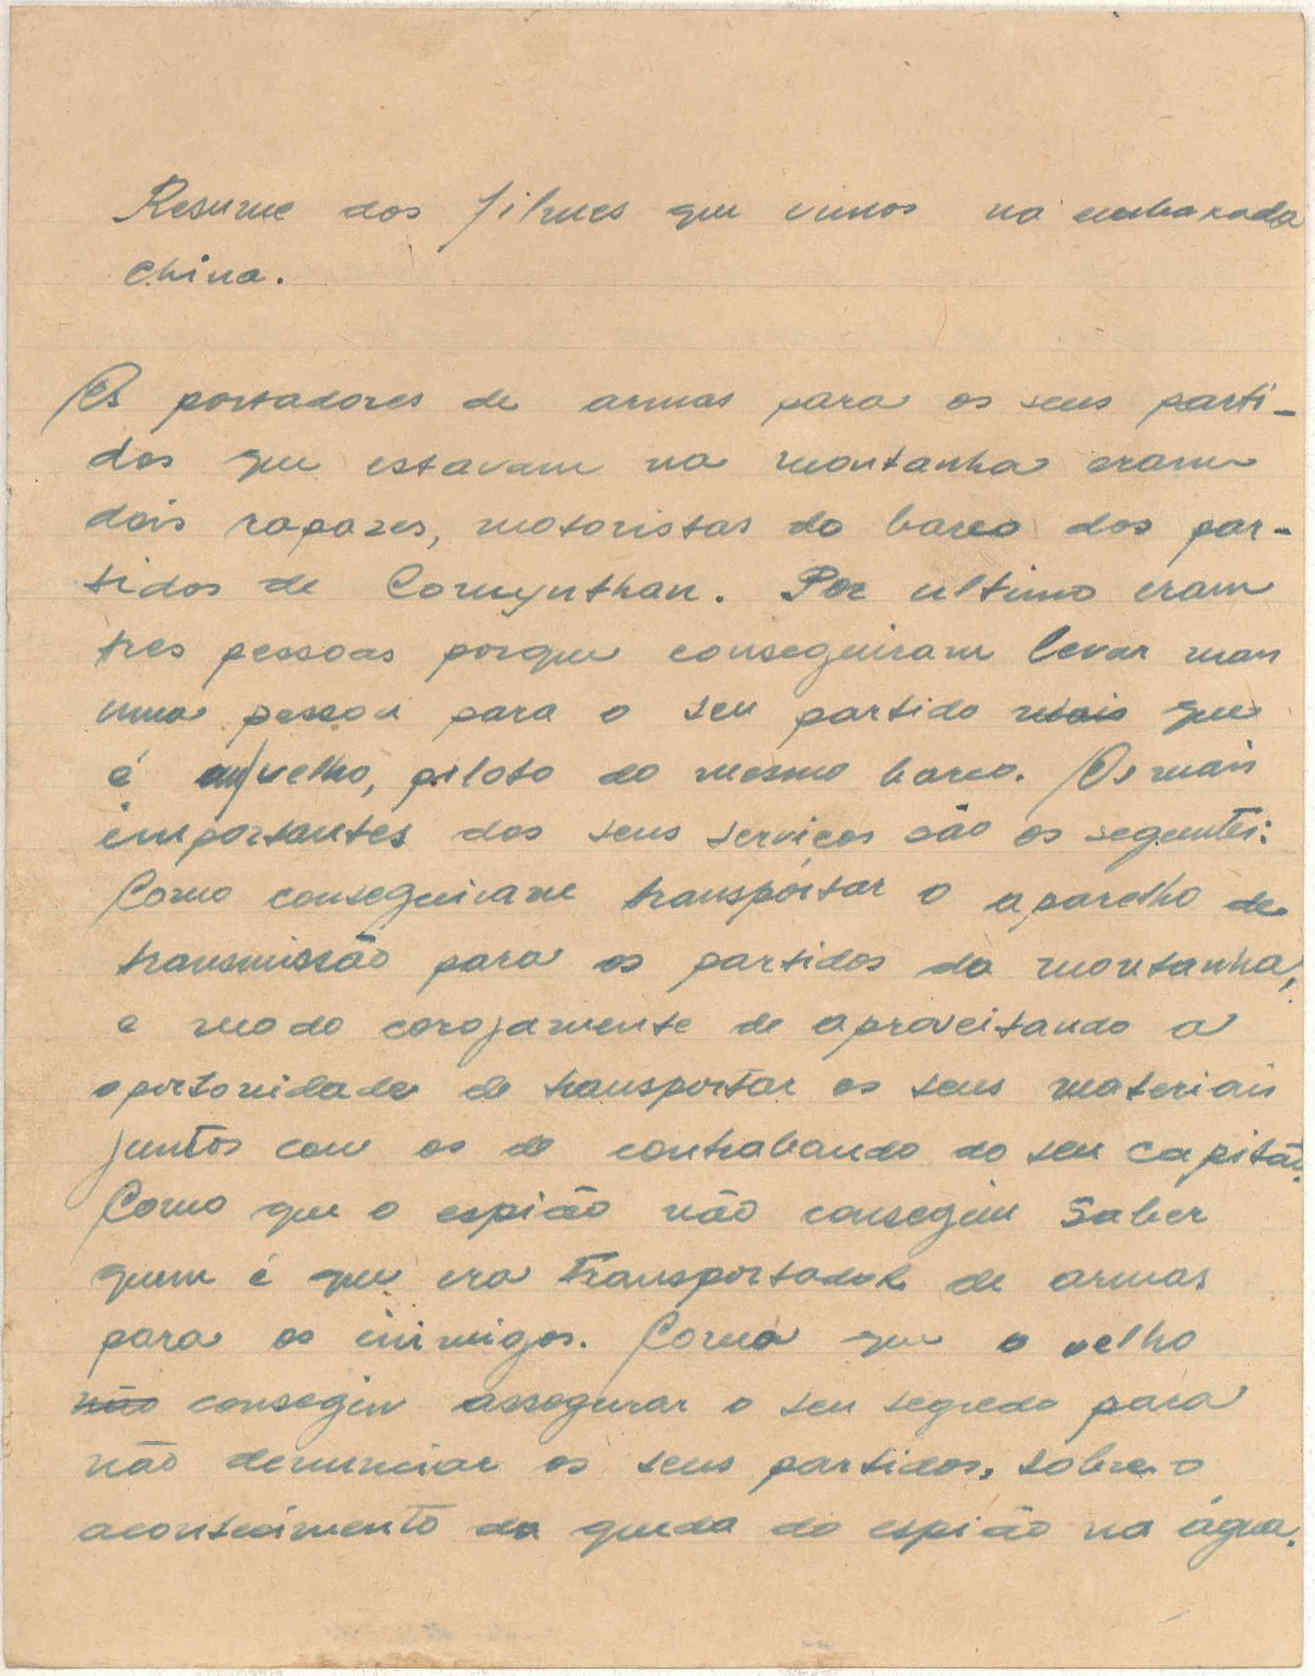 Resume dos filmes que vimos na embaxada
China.
Os portadores de armas para os seus parti-
dos que estavam na montanha eram
dois rapazes, motoristas do barco dos par-
tidos de Comynthan. Por ultimo eram
tres pessoas porque conseguiram levar mais
uma pessoa para o seu partido que
é um velho, piloto do mesmo barco. Os mais
importantes dos seus serviços são os seguintes:
Como conseguiram transpórtar o aparelho de
transmissão para os partidos da montanha,
e modo corojamente de aproveitando a
oportonidade de transportar os seus materiais
juntos com os de contrabando do seu capitão.
Como que o espião não conseguiu saber
quem é que era transportador de armas
para os inimigos. Como que o velho
não consegiu assegurar o seu segredo para
não denunciar os seus partidos, sobre o
acontecimento da queda do espião na água.